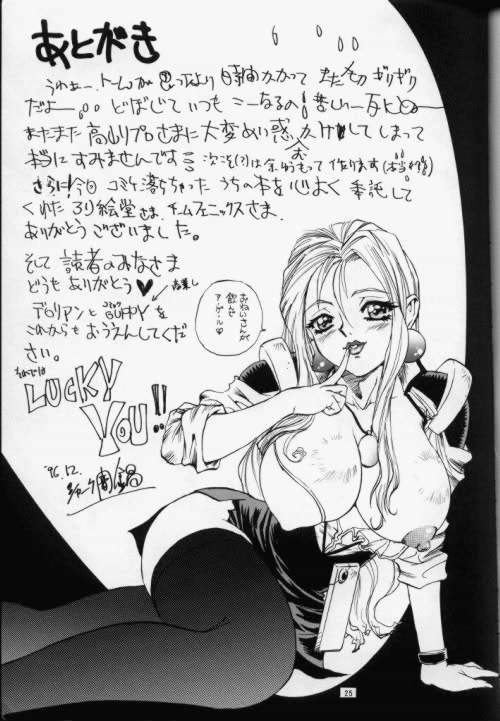 あとがき
時間かかって またもやギリギリ
だよー どぼじて いつも こーなるの!
またまた 高山プロさまに 大変めい惑 おかけしてしまって
本当にすみませんです 次こそ(?)は余ゆうもって作ります
さらに!今回 コミケ落ちちゃった うちの本を心よく 委託して
くれた ろり絵堂さま、チームフェニックスさま、
ありがとうございました。
そして 読者のみなさま
どうもありがとう♥
デロリアンと GUPPYを
これからも おうえんしてくだ
さい。
それでは
LUCKY
YOU!!
'96.12.
おねいさんが
飲んで
ア・ゲ・ル♡
25